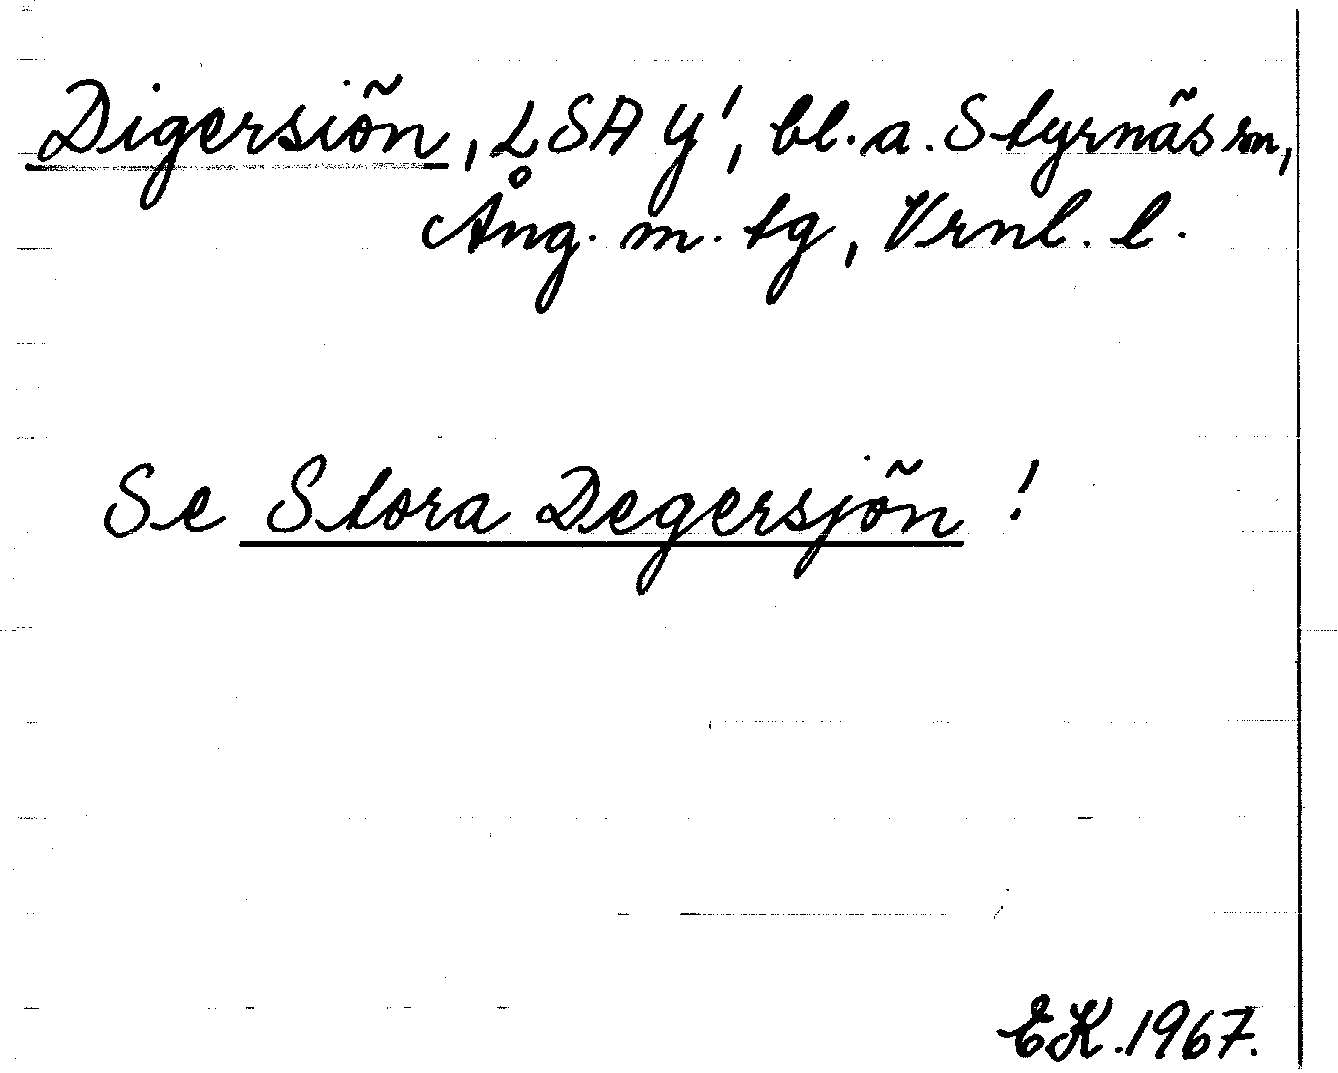 Digersiön, LSA Y', bl.a. Styrnäs sn,
Ång. m. tg, Vrnl. l.
Se Stora Degersjön!
EK.1967.